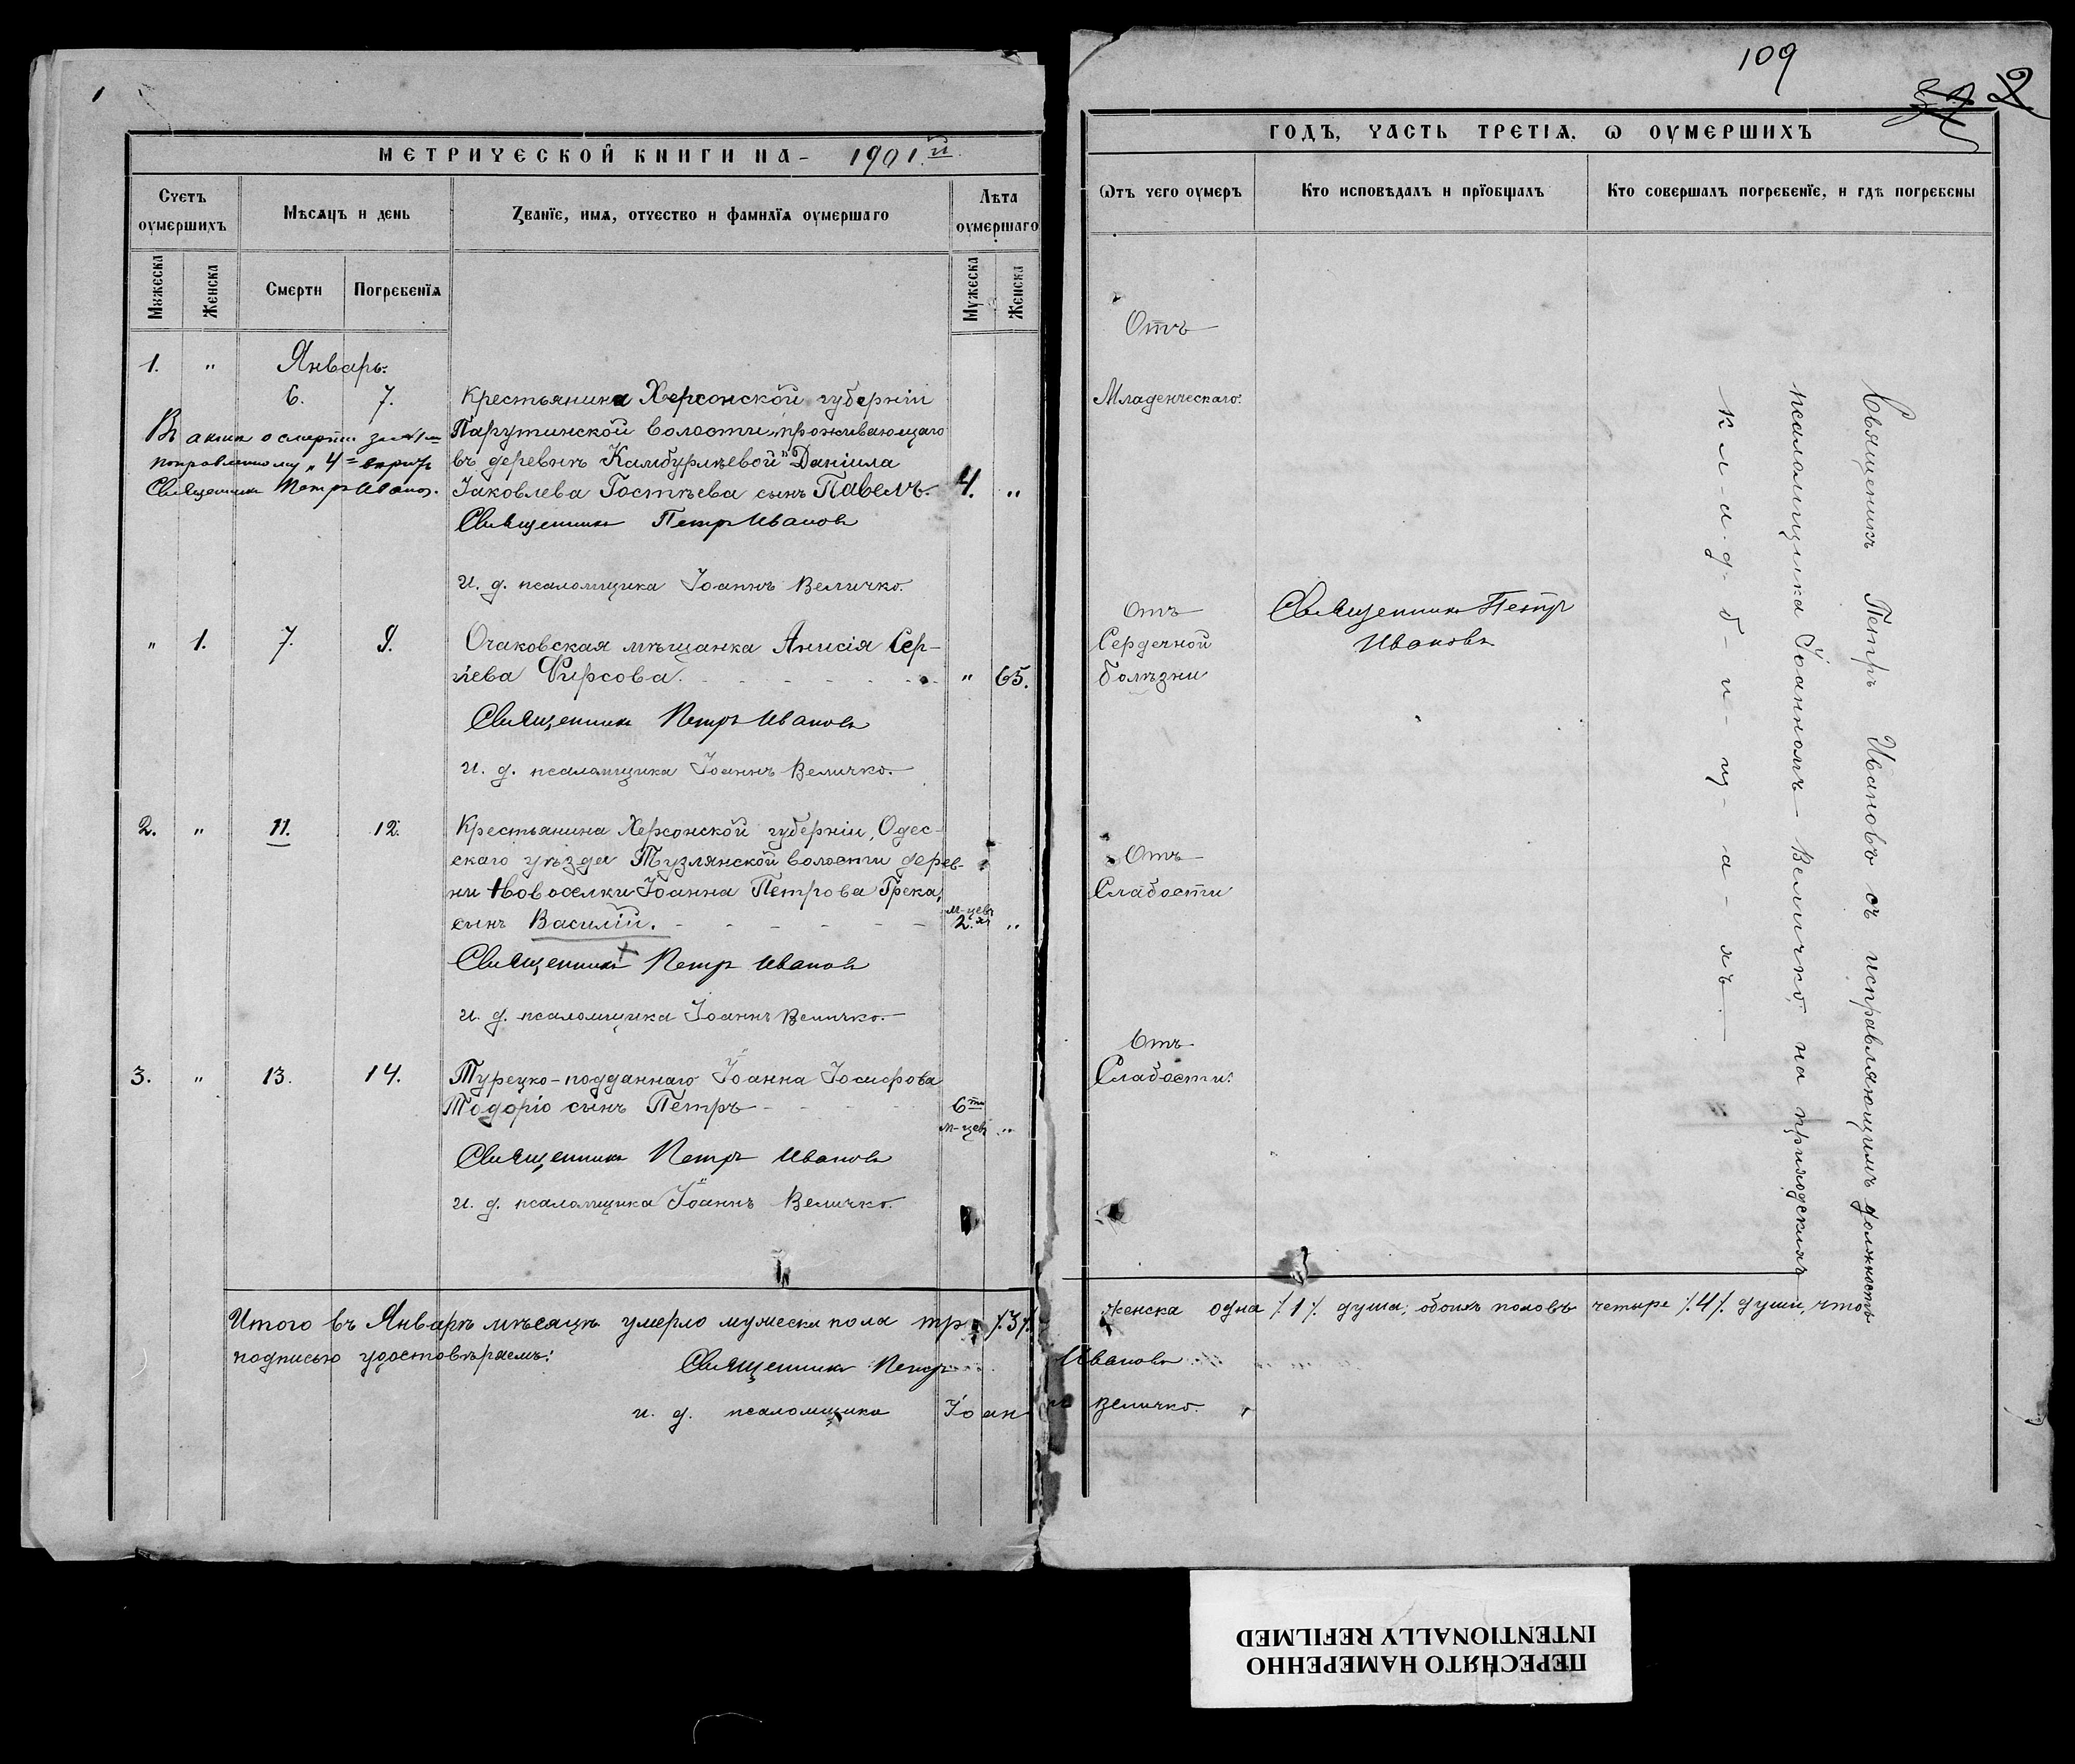 1
МЕТРИЧЕСКОЙ КНИГИ НА 1901й
Счетъ оумершихъ
Мѣсяцъ и день
Званїе, имя, отчество и фамилїя оумершаго
Лѣта оумершаго
Мужеска
Женска
Смерти
Погребенїя
Мужеска
Женска
1. " Январь:
6. 7. Крестьянина Херсонской губерніи
Парутинской волости, проживающаго
въ деревнѣ "Камбурлѣевой" Даніила
Іаковлева Гостѣева сынъ Павелъ. 4. "
Въ актѣ о смерти
поправленному "4" вѣрить
Священникъ Петръ Ивановъ.
Священникъ Петръ Ивановъ
и. д. псаломщика Іоаннъ Величко.
" 1. 7. 9. Очаковская мѣщанка Анисія Сер-
гіева Фирсова. - - - - - - " 65.
Священникъ Петръ Ивановъ
и. д. псаломщика Іоаннъ Величко.
2. " 11. 12. Крестьянина Херсонской губерніи, Одес-
скаго уѣзда Тузлянской волости дерев-
ни Новоселки Іоанна Петрова Грека,
сынъ Василій. - - - - - - 2.хъ м-цевъ "
Священникъ Петръ Ивановъ
и. д. псаломщика Іоаннъ Величко.
3. " 13. 14. Турецко-подданнаго Іоанна Іосифова
Тодоріо сынъ Петръ - - - 6ти м-цевъ "
Священникъ Петръ Ивановъ
и. д. псаломщика Іоаннъ Величко.
Итого въ Январѣ мѣсяцѣ умерло мужеска пола три /.3/.
подписью удостовѣряемъ:
Священникъ Петръ
и. д. псаломщика Іоан
109
2
ГОДЪ, ЧАСТЬ ТРЕТІЯ, Ѡ ОУМЕРШИХЪ
Ѿтъ чего оумеръ
Кто исповѣдалъ и прїобщалъ
Кто совершалъ погребенїе, и гдѣ погребены
Отъ
Младенческаго.
Отъ
Сердечной
болѣзни
Священникъ Петръ
Ивановъ
Отъ
Слабости
Отъ
Слабости.
Священникъ Петръ Ивановъ съ исправляющимъ должность
псаломщика Іоанномъ Величко, на приходскихъ
к-л-а-д-б-и-щ-а-хъ.
женска одна /.1/. душа; обоихъ половъ четыре /.4/. души, что
Ивановъ
Величко.
ПЕРЕСНЯТО НАМЕРЕННО
INTENTIONALLY REFILMED